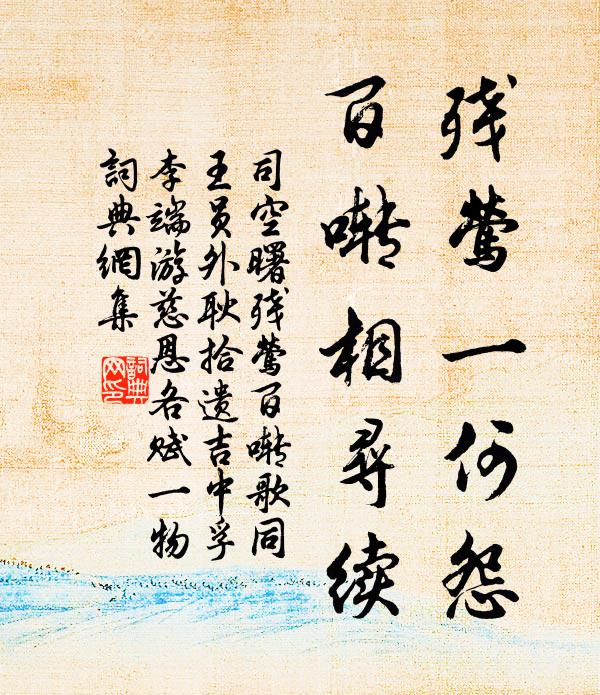 残莺一何怨
百啭相寻续
司空曙残莺百啭歌同
王员外耿拾遗吉中孚
李端游慈恩各赋一物
詞典網集
詞典
网印